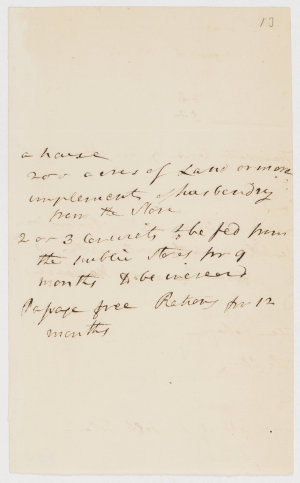 13
a house
200 acres of Land or more
implements of husbendry
from the Store
2 or 3 Convicts to be fed from
the public Stores for 9
months to be
Pasage free Rations for 12
months